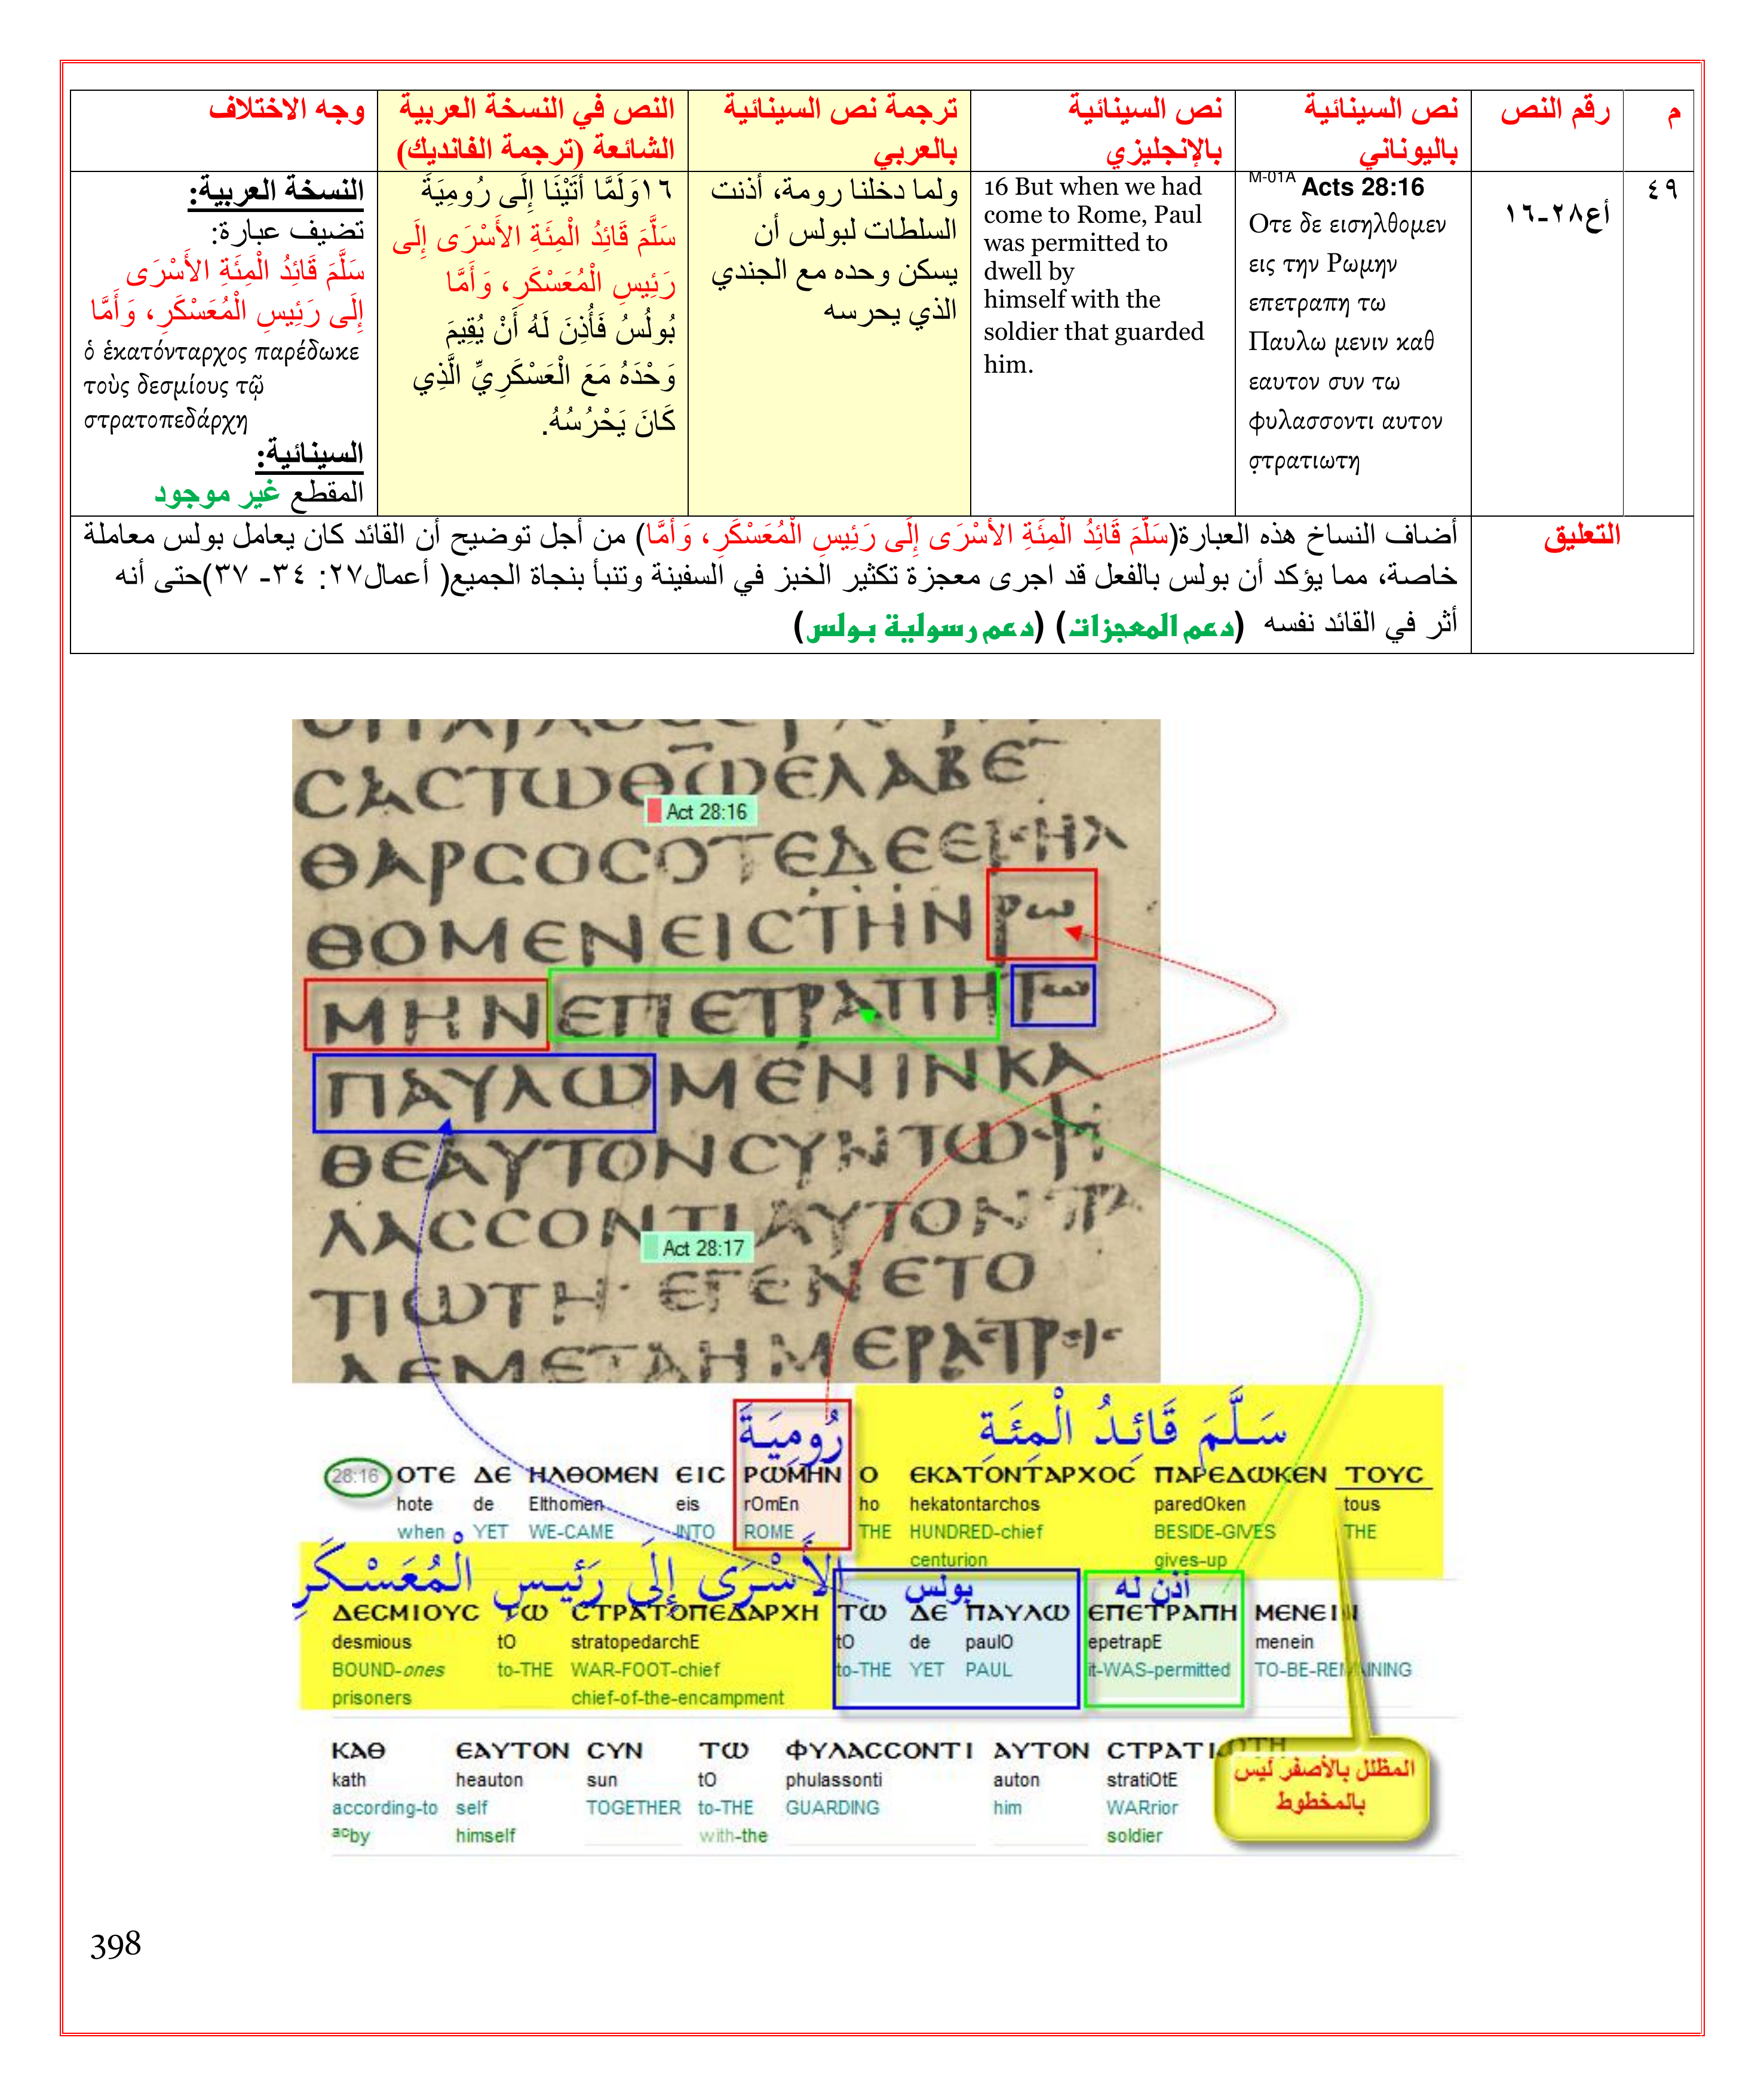 م
رقم النص
نص السينائية
باليوناني
نص السينائية
بالإنجليزي
ترجمة نص السينائية
بالعربي
النص في النسخة العربية
الشائعة (ترجمة الفانديك)
وجه الاختلاف
٤٩
أع٢٨-١٦
M-01A Acts 28:16
Οτε δε εισηλθομεν
εις την Ρωμην
επετραπη τω
Παυλω μενιν καθ
εαυτον συν τω
φυλασσοντι αυτον
στρατιωτη
16 But when we had
come to Rome, Paul
was permitted to
dwell by
himself with the
soldier that guarded
him.
ولما دخلنا رومة، أذنت
السلطات لبولس أن
يسكن وحده مع الجندي
الذي يحرسه
١٦وَلَمَّا أَتَيْنَا إِلَى رُومِيَةَ
سَلَّمَ قَائِدُ الْمِئَةِ الأَسْرَى إِلَى
رَئِيسِ الْمُعَسْكَرِ، وَأَمَّا
بُولُسُ فَأُذِنَ لَهُ أَنْ يُقِيمَ
وَحْدَهُ مَعَ الْعَسْكَرِيِّ الَّذِي
كَانَ يَحْرُسُهُ.
النسخة العربية:
تضيف عبارة:
سَلَّمَ قَائِدُ الْمِئَةِ الأَسْرَى
إِلَى رَئِيسِ الْمُعَسْكَرِ، وَأَمَّا
ὁ ἑκατόνταρχος παρέδωκε
τοὺς δεσμίους τῷ
στρατοπεδάρχῃ
السينائية:
المقطع غير موجود
التعليق
أضاف النساخ هذه العبارة(سَلَّمَ قَائِدُ الْمِئَةِ الأَسْرَى إِلَى رَئِيسِ الْمُعَسْكَرِ، وَأَمَّا) من أجل توضيح أن القائد كان يعامل بولس معاملة
خاصة، مما يؤكد أن بولس بالفعل قد اجرى معجزة تكثير الخبز في السفينة وتنبأ بنجاة الجميع( أعمال٢٧: ٣٤- ٣٧)حتى أنه
أثر في القائد نفسه (دعم المعجزات) (دعم رسولية بولس)
ϹΑϹΤΩΘΩΕΛΑΒΕ
Act 28:16
ΘΑΡϹΟϹΟΤΕΔΕΕΙϹΗΛ
ΘΟΜΕΝΕΙϹΤΗΝΡΩ
ΜΗΝΕΠΕΤΡΑΠΗΤΩ
ΠΑΥΛΩΜΕΝΙΝΚΑ
ΘΕΑΥΤΟΝϹΥΝΤΩΦΥ
ΛΑϹϹΟΝΤΙΑΥΤΟΝϹΤΡΑ
Act 28:17
ΤΙΩΤΗ· ΕΓΕΝΕΤΟ
ΔΕΜΕΤΑΗΜΕΡΑϹΤΡΙϹ
رُومِيَةَ سَلَّمَ قَائِدُ الْمِئَةِ
28:16 ΟΤΕ ΔΕ ΗΛΘΟΜΕΝ ΕΙϹ ΡΩΜΗΝ Ο ΕΚΑΤΟΝΤΑΡΧΟϹ ΠΑΡΕΔΩΚΕΝ ΤΟΥϹ
hote de Elthomen eis rOmEn ho hekatontarchos paredOken tous
when YET WE-CAME INTO ROME THE HUNDRED-chief BESIDE-GIVES THE
centurion gives-up
الأَسْرَى إِلَى رَئِيسِ الْمُعَسْكَرِ بولس أذن له
ΔΕϹΜΙΟΥϹ ΤΩ ϹΤΡΑΤΟΠΕΔΑΡΧΗ ΤΩ ΔΕ ΠΑΥΛΩ ΕΠΕΤΡΑΠΗ ΜΕΝΕΙΝ
desmious tO stratopedarchE tO de paulO epetrapE menein
BOUND-ones to-THE WAR-FOOT-chief to-THE YET PAUL it-WAS-permitted TO-BE-REMAINING
prisoners chief-of-the-encampment
ΚΑΘ ΕΑΥΤΟΝ ϹΥΝ ΤΩ ΦΥΛΑϹϹΟΝΤΙ ΑΥΤΟΝ ϹΤΡΑΤΙΩΤΗ
kath heauton sun tO phulassonti auton stratiOtE
according-to self TOGETHER to-THE GUARDING him WARrior
acby himself with-the soldier
المظلل بالأصفر ليس
بالمخطوط
398